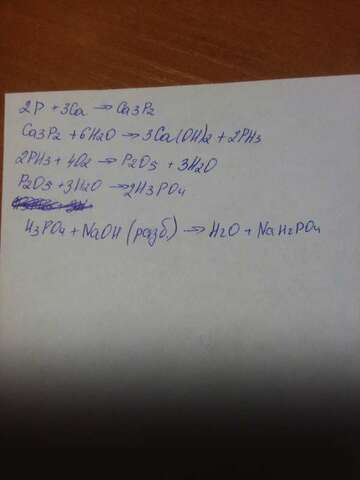 2P + 3Ca → Ca3P2
Ca3P2 + 6H2O → 3Ca(OH)2 + 2PH3
2PH3 + 4O2 → P2O5 + 3H2O
P2O5 + 3H2O → 2H3PO4
H3PO4 + NaOH (разб.) → H2O + NaH2PO4